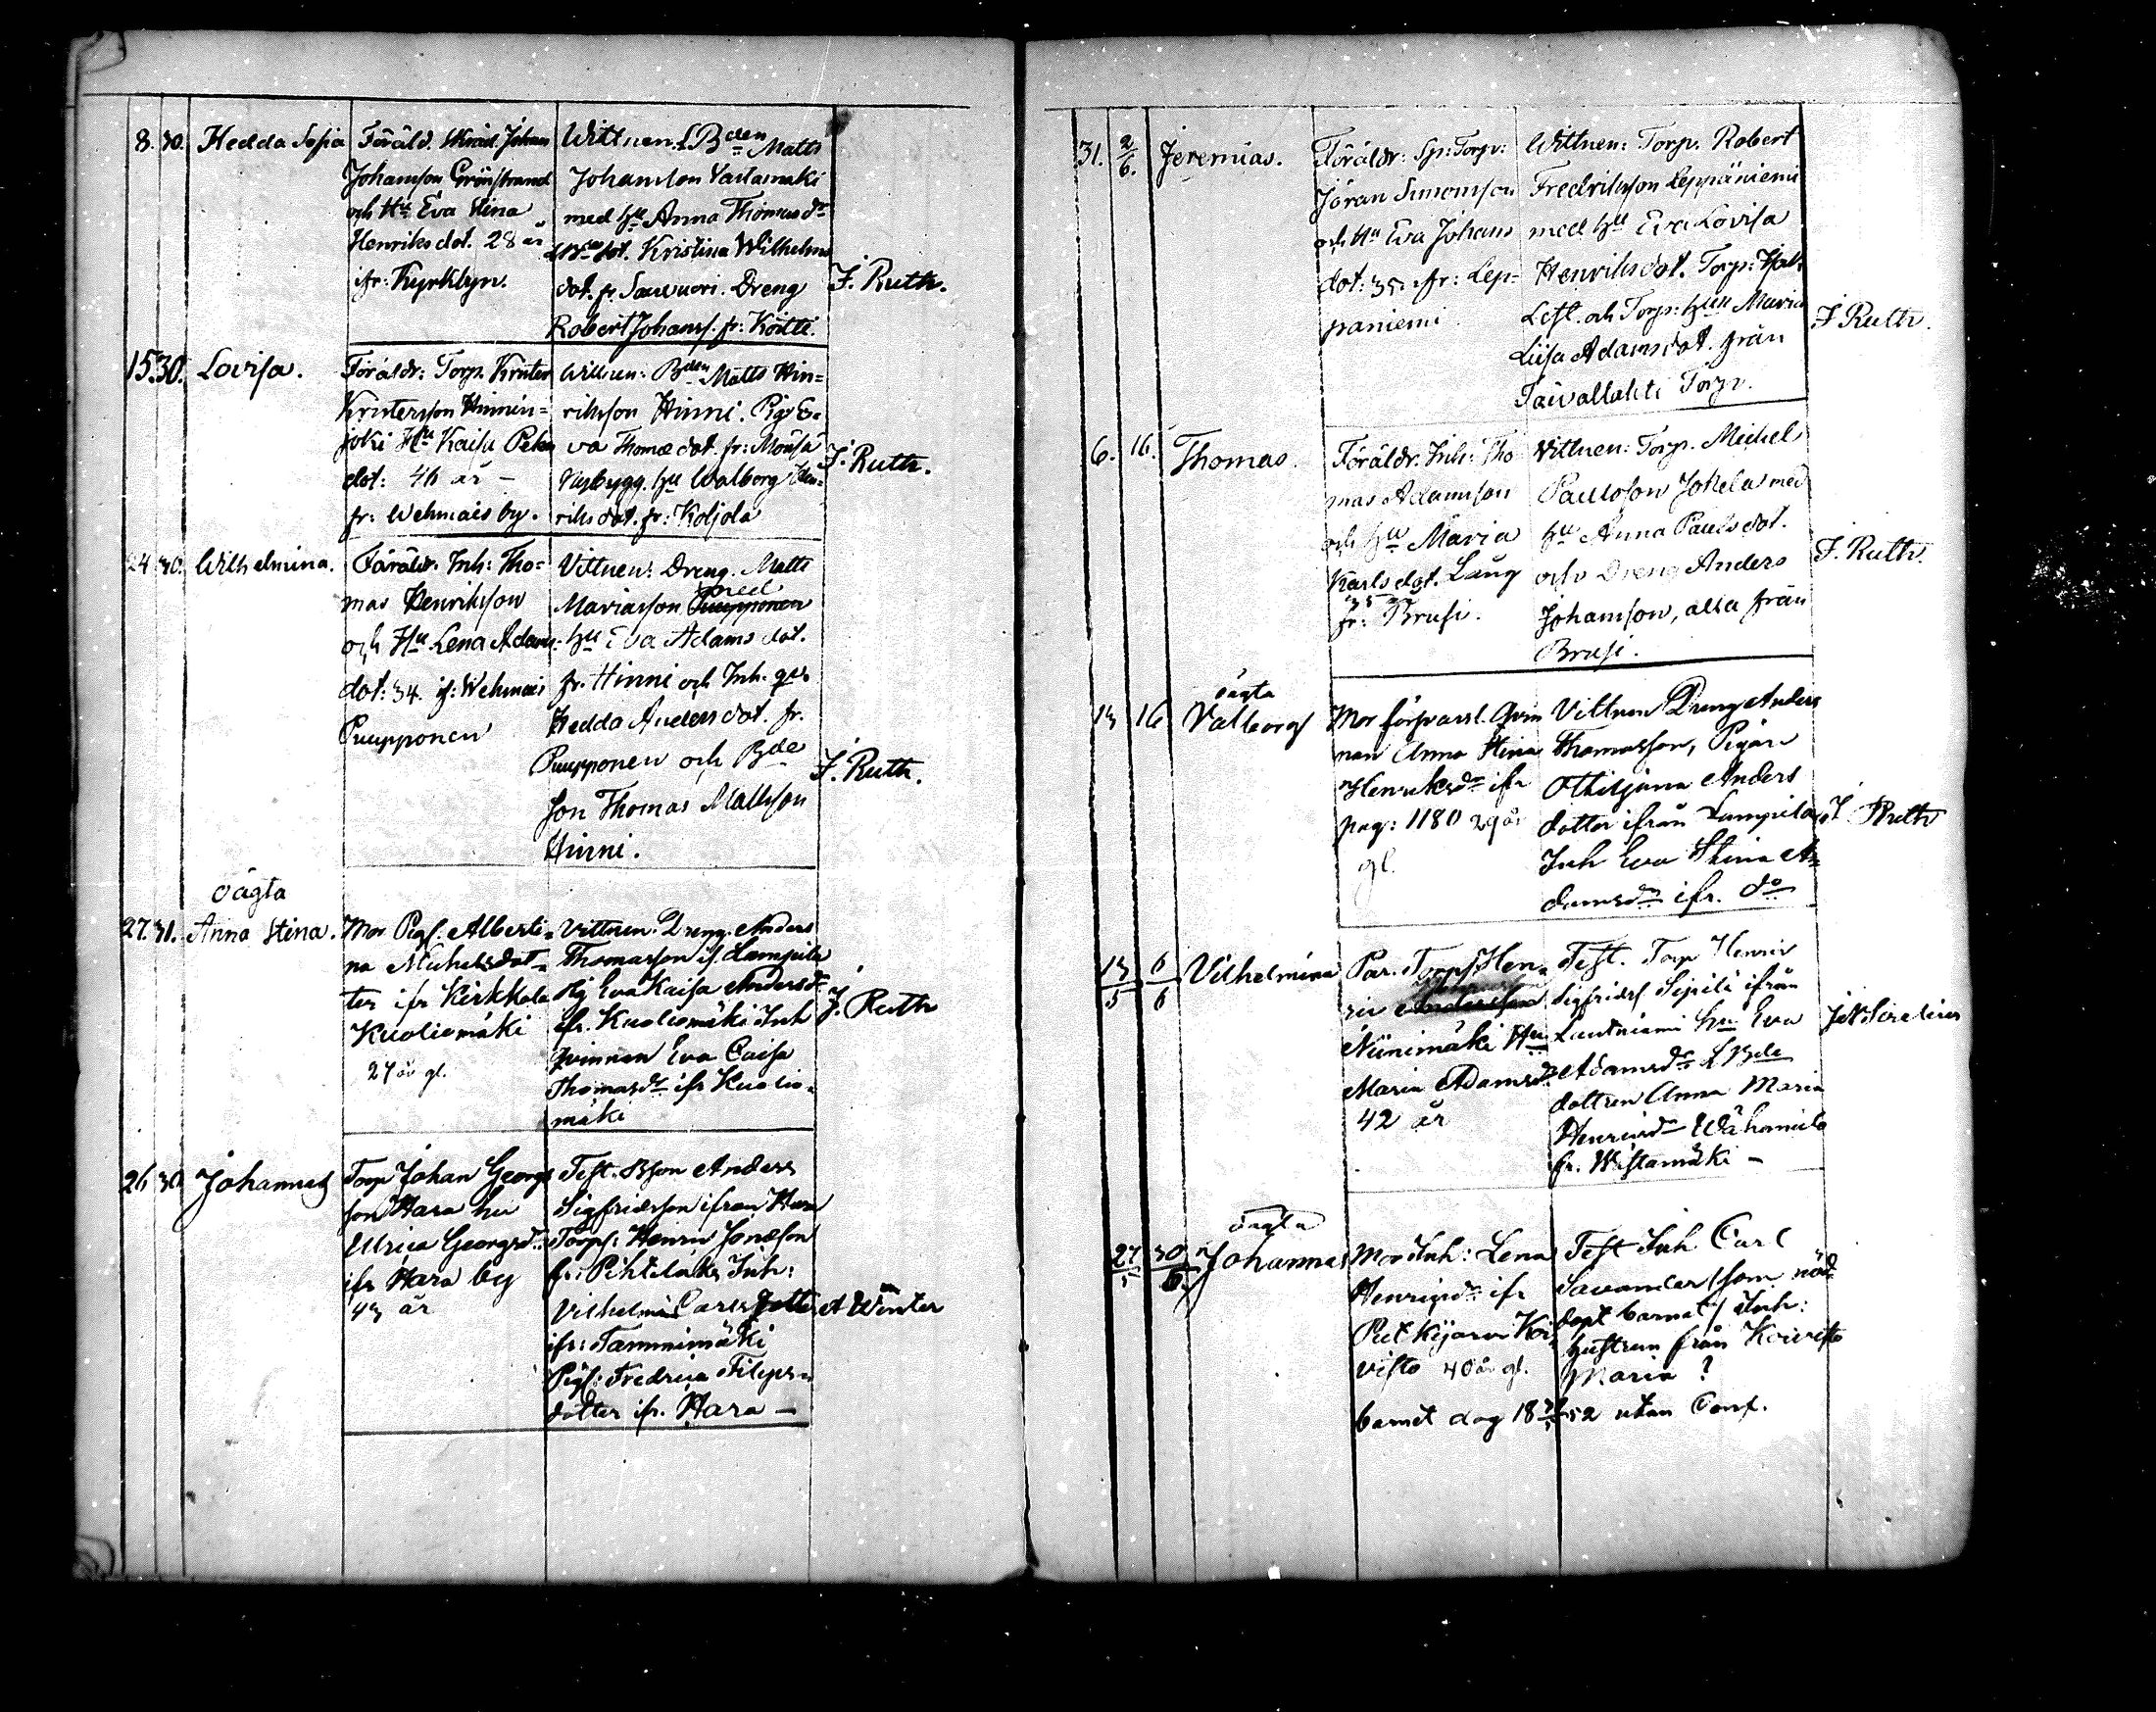 8. 30. Hedda Sofia
Föräld. Johan
Johansson Grönstrand
och Hu Eva Stina
Henriksdot. 28 år
ifr: Kyrklyn.
Wittnen. LBden Matts
Johansson
med hu Anna Thomasdr
Kristina Wilhelms
dot. fr Dreng
Robert Johanss. fr: Köitti.
J. Ruth.
15. 30. Lovisa.
Föräldr: Torp. Krister
Kristersson Hinnin=
joki Hu Kaisa Peters
dot: 46 år –
fr: Wehmais by.
Wittnen: Bden Matts Hin=
riksson Hinni. Pig: E=
va Thomædot. fr:
Nybygg. hu Walborg Hen=
riksdot. fr: Koljola
J. Ruth.
24 30. Wilhelmina.
Föräldr. Inh: Tho=
mas Henriksson
och Hu Lena Adams
dot: 34. if: Wehmais
Puupponen
Vittnen: Dreng. Matts
Mariasson Puupponen med
hu Eva Adamsdot.
fr. Hinni och Inh. qv.
Hedda Andersdot. fr.
Puupponen och Bde
son Thomas Mattsson
Hinni.
J. Ruth.
27. 31. oägta
Anna Stina.
Mor Pigs. Alberti=
na Michelsdot=
ter ifr Kirkkala
Kuoliomäki
27 år gl.
Vittnen. Dreng. Anders
Thomasson if. Lampila
Pig Eva Kaisa Andersdr
ifr. Kuoliomäki Inh
qvinnan Eva Caisa
Thomasdr ifr Kuolio=
mäki
J. Ruth
26 30 Johannes
Torp Johan Georgs
son Hara hu
Ulrica Georgsd:
ifr Hara by
43 år
Test. Bson Anders
Sigfridsson ifrån Hara
Torps: Henric Jonasson
fr: Inh:
Vilhelmina Carlsdotter
ifr: Tammimäki
Pigs: Fredrica Filips=
dotter ifr. Hara –
A Winter
31. 2/6. Jeremias.
Föräldr: Sp: Torp:
Jöran Simonsson
och Hu Eva Johans
dot: 35. fr: Lep=
päniemi
Wittnen: Torp. Robert
Fredriksson Leppäniemi
med hu Eva Lovisa
Henriksdot. Torp:
och Torp: hun Maria
Liisa Adamsdot. från
Taivallahti Torp.
J Ruth.
6. 16. Thomas.
Föräldr. Inh: Tho
mas Adamsson
och hu Maria
Karlsdot. Lång
35
fr: Brusi.
Vittnen: Torp. Michel
Paulsson Jokela med
hu Anna Paulsdot.
och Dreng Anders
Johansson, alla från
Brusi.
J. Ruth.
13 16 oägta
Valborg
Mor förvarsl. Qvin
nan Anna Stina
Henricsdr ifr
pag: 1180 29 år
gl.
Vittnen Dreng Anders
Thomasson, Pigan
Othiljana Anders
dotter ifrån Lampila
Inh Eva Stina A=
damsdr ifr. do
J Ruth
13/5 6/6 Vilhelmina
Par. Torps Hen=
ric
Niinimäki Hu
Maria Adamsdr
42 år
Test. Torp Henric
Sigfridss Sipilä ifrån
Lautniemi hu Eva
Adamsdr LBde
dottren Anna Maria
Henricsdr Wähamula
fr. Wistamäki –
27/5 30/6. oägta
Johannes
Mor Inh: Lena
Henricsdr ifr
Koi
visto 40 år gl.
barnet dog 18 52 utan Conf.
Test Inh Carl
Savander (som nöd
döpt barnet) Inh:
hustrun från Koivisto
Maria ?